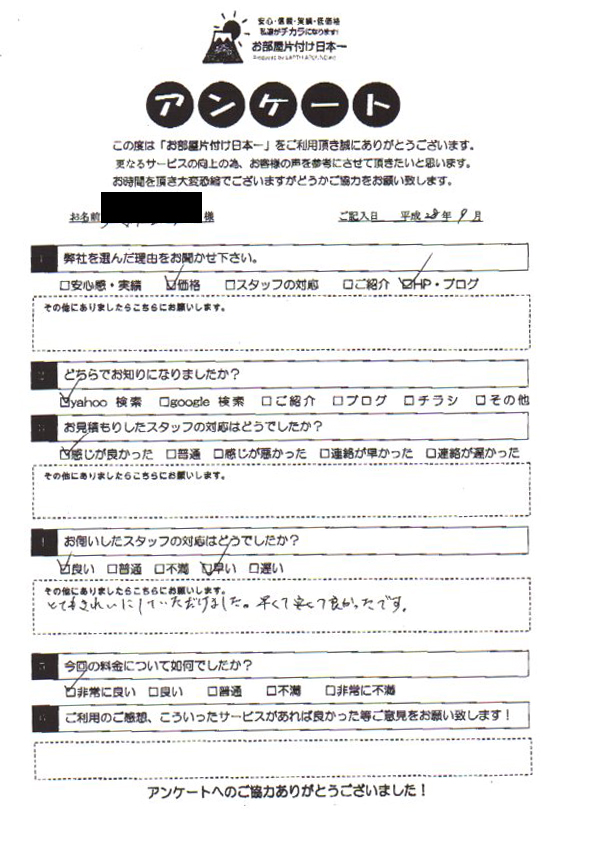 安心・信頼・実績・低価格
私達がチカラになります!
お部屋片付け日本一
アンケート
この度は「お部屋片付け日本一」をご利用頂き誠にありがとうございます。
更なるサービスの向上の為、お客様の声を参考にさせて頂きたいと思います。
お時間を頂き大変恐縮でございますがどうかご協力をお願い致します。
お名前 様 ご記入日 平成28年9月
1 弊社を選んだ理由をお聞かせ下さい。
□安心感・実績 ☑価格 □スタッフの対応 □ご紹介 ☑HP・ブログ
その他にありましたらこちらにお願いします。
2 どちらでお知りになりましたか?
☑yahoo 検索 □google 検索 □ご紹介 □ブログ □チラシ □その他
3 お見積もりしたスタッフの対応はどうでしたか?
☑感じが良かった □普通 □感じが悪かった □連絡が早かった □連絡が遅かった
その他にありましたらこちらにお願いします。
4 お伺いしたスタッフの対応はどうでしたか?
☑良い □普通 □不満 ☑早い □遅い
その他にありましたらこちらにお願いします。
とてもきれいにしていただけました。早くて安くて良かったです。
5 今回の料金について如何でしたか?
☑非常に良い □良い □普通 □不満 □非常に不満
6 ご利用のご感想、こういったサービスがあれば良かった等ご意見をお願い致します!
アンケートへのご協力ありがとうございました!